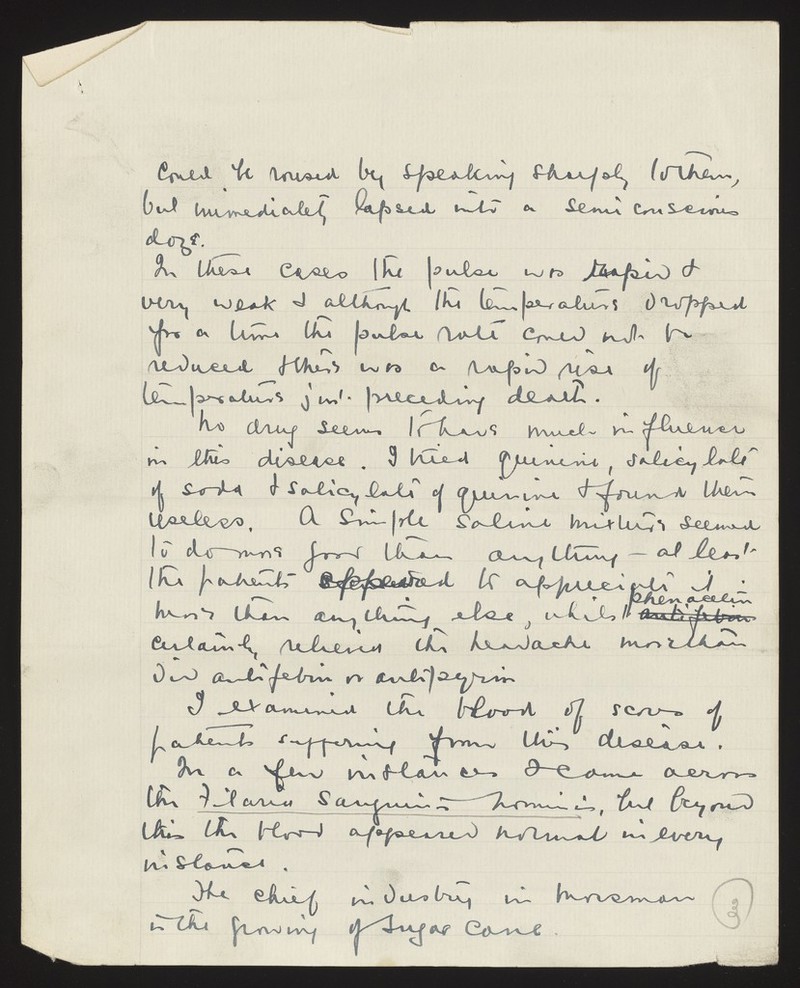 could be roused by speaking sharply to them,
but immediately lapsed into a semi conscious
doze.
In these cases the pulse was rapid &
very weak & although the temperature dropped
for a time the pulse rate could not be
reduced & there was a rapid rise of
temperature just preceding death.
No drug seems to have much influence
in this disease. I tried quinine, salicylate
of soda & salicylate of quinine & found them
useless. A simple saline mixture seemed
to do more good than anything – at least
the patients appeared to appreciate it
more than anything else, whilst phenacetin antifebrin
certainly relieved the headache more than
did antifebin or antipyrin
I examined the blood of scores of
patients suffering from this disease.
In a few instances I came across
the Filaria Sanguinis hominis, but beyond
this the blood appeared normal in every
instance.
The chief industry in Mossman
is the growing of Sugar Cane.